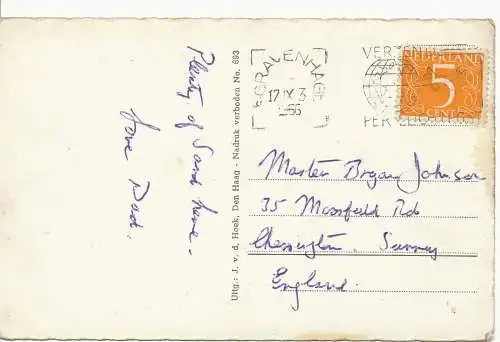 Plenty of Sand here.
Love Dad.
Uitg.: J. v. d. Hoek, Den Haag - Nadruk verboden No. 693
'S-GRAVENHAGE
17 IX 3
66
VERZEN
PER
NEDERLAND
5
CENT
Master Bryan Johnson
35 Moorfield Rd
Chessington. Surrey
England.